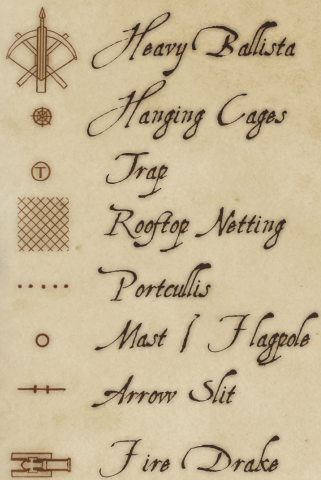 Heavy Ballista
Hanging Cages
T Trap
Rooftop Netting
Portcullis
Mast / Flagpole
Arrow Slit
Fire Drake